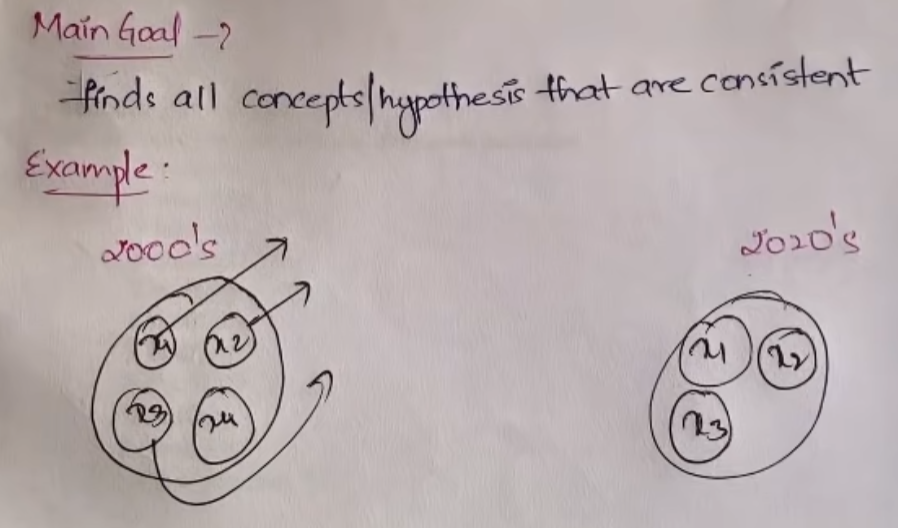 Main Goal →
finds all concepts/hypothesis that are consistent
Example:
2000's
2020's
x1 x2
x3 x4
x1 x2
x3